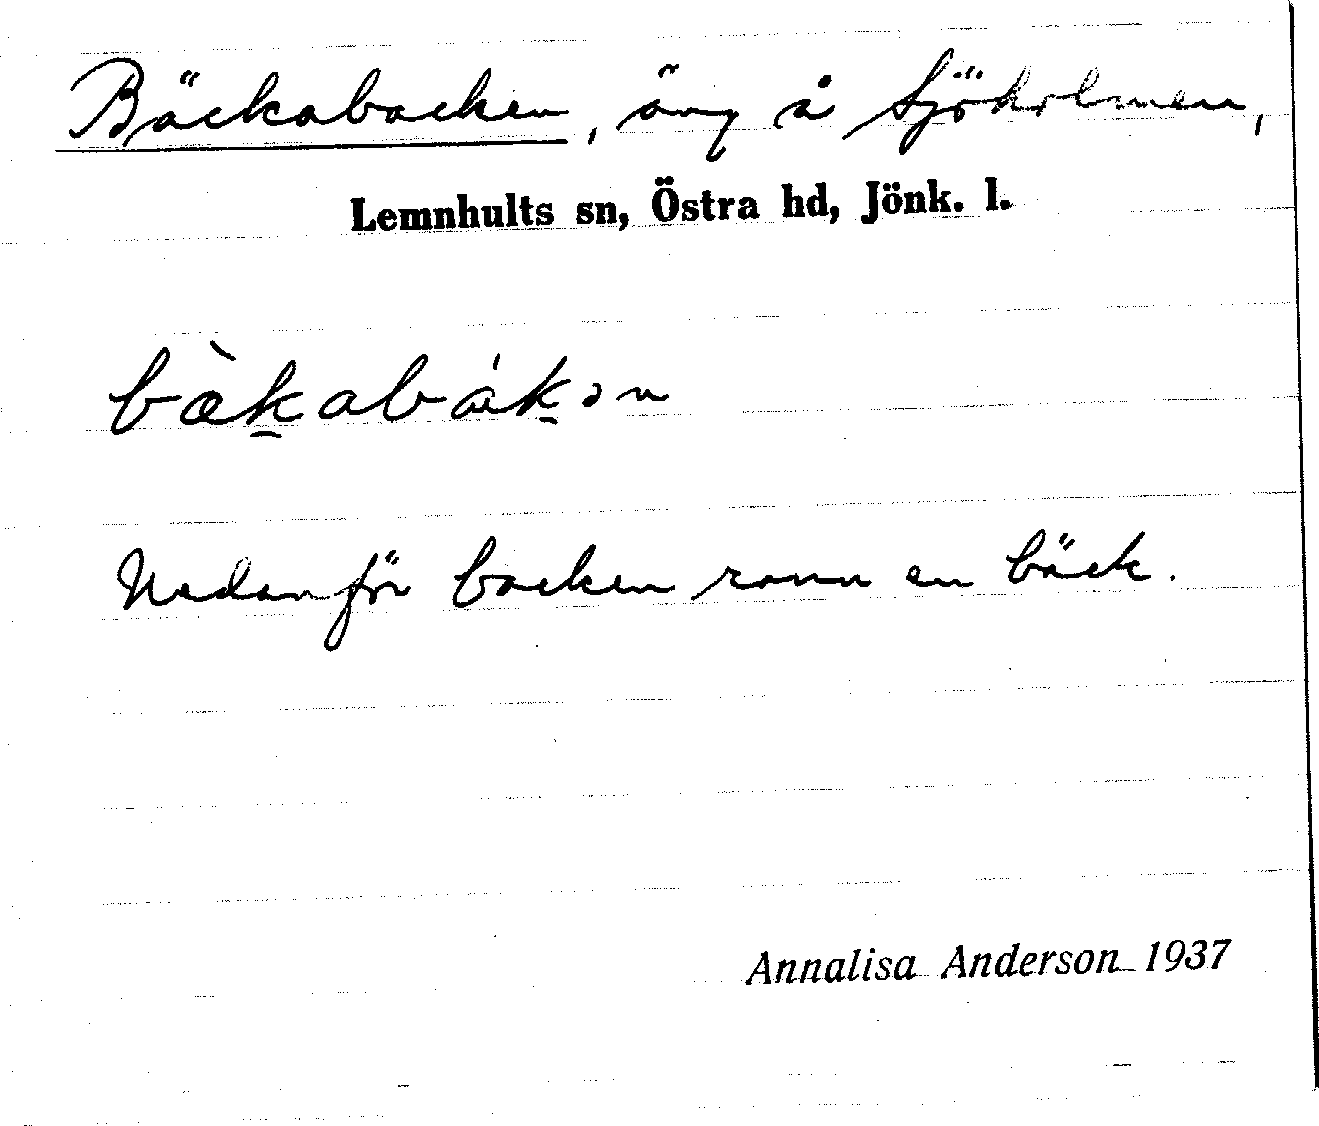 Bäckabacken, äng å Sjöholmen,
Lemnhults sn, Östra hd, Jönk. l.
bæ̀k̠abák̠ən
Nedanför backen rann en bäck.
Annalisa Anderson 1937